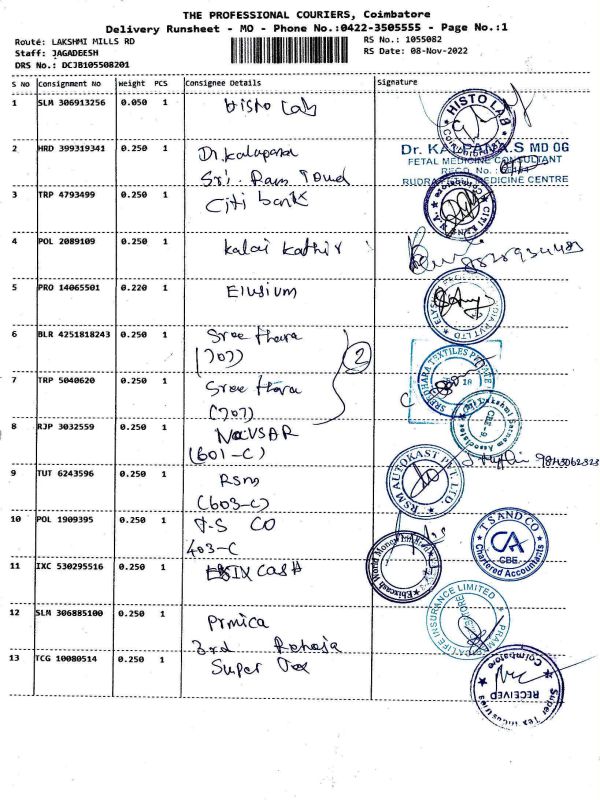 THE PROFESSIONAL COURIERS, Coimbatore
Delivery Runsheet - MO - Phone No.:0422-3505555 - Page No.:1
Route: LAKSHMI MILLS RD
RS No.: 1055082
Staff: JAGADEESH
RS Date: 08-Nov-2022
DRS No.: DCJB105508201
S No Consignment No Weight PCS Consignee Details Signature
1 SLM 306913256 0.050 1 Histo Lab
HISTO LAB
2 HRD 399319341 0.250 1 Dr. Kalapana
Dr. KALPANA.S MD OG
FETAL MEDICINE CONSULTANT
Sri. Ram
MEDICINE CENTRE
3 TRP 4793499 0.250 1 Citi bank
4 POL 2089109 0.250 1 Kalai Kathir
5 PRO 14065501 0.220 1 Elusium
6 BLR 4251818243 0.250 1 Sree thara
(707)
2
SREE DHARA TEXTILES
7 TRP 5040620 0.250 1 Sree thara
(707)
8 RJP 3032559 0.250 1 NavSAR
(601-C)
9 TUT 6243596 0.250 1 RSM
(603-C)
RSM AUTOKAST PVT. LTD.
10 POL 1909395 0.250 1 T.S CO
403-C
T S AND CO
CA
CBE
Chartered Accountants
11 IXC 530295516 0.250 1 CASH
Ebixcash World Money
12 SLM 306885100 0.250 1 Prmica
3rd Raheja
LIFE INSURANCE LIMITED
13 TCG 10080514 0.250 1 Super Tex
RECEIVED
Super Tex Industries
Coimbatore